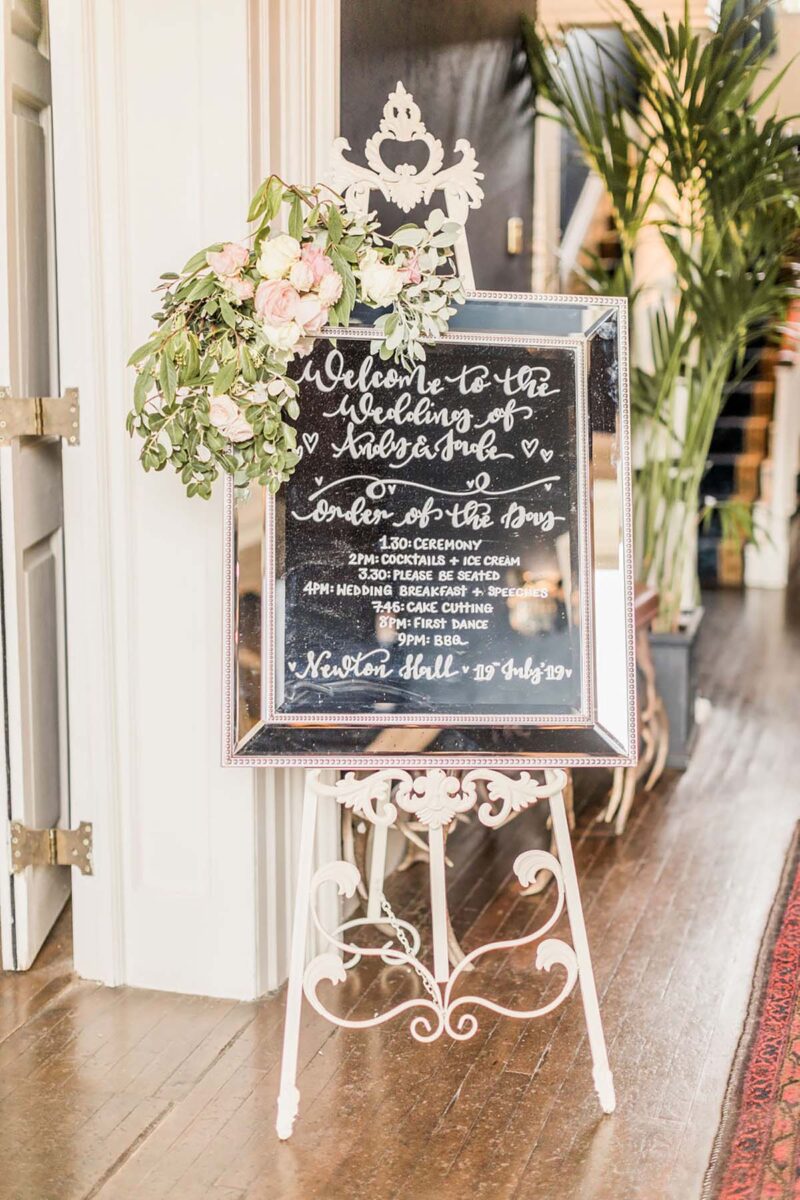 Welcome to the
Wedding of
Andy & Jade
Order of the Day
1.30: CEREMONY
2PM: COCKTAILS + ICE CREAM
3.30: PLEASE BE SEATED
4PM: WEDDING BREAKFAST + SPEECHES
7.45: CAKE CUTTING
8PM: FIRST DANCE
9PM: BBQ
Newton Hall 19th July '19